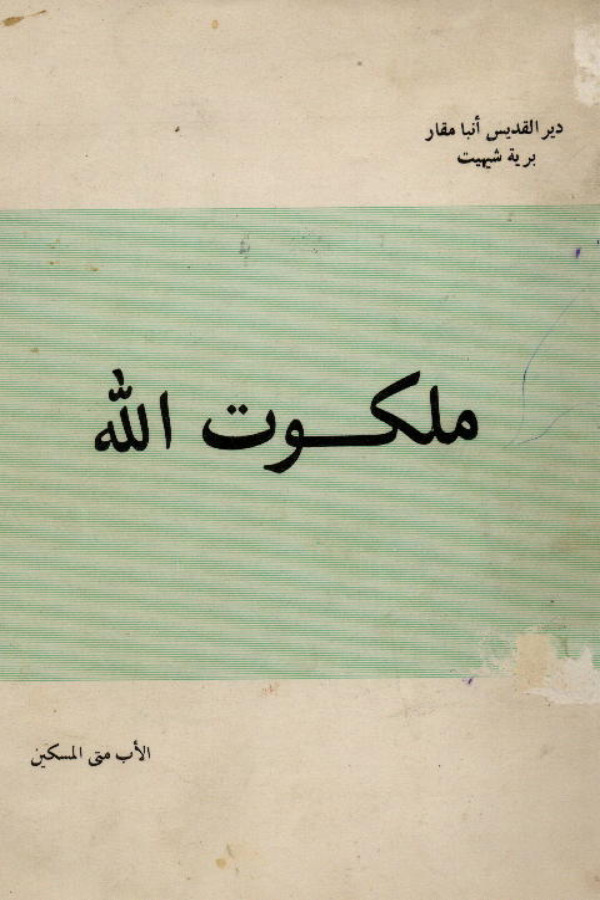 دير القديس أنبا مقار
برية شيهيت
ملكوت الله
الأب متى المسكين